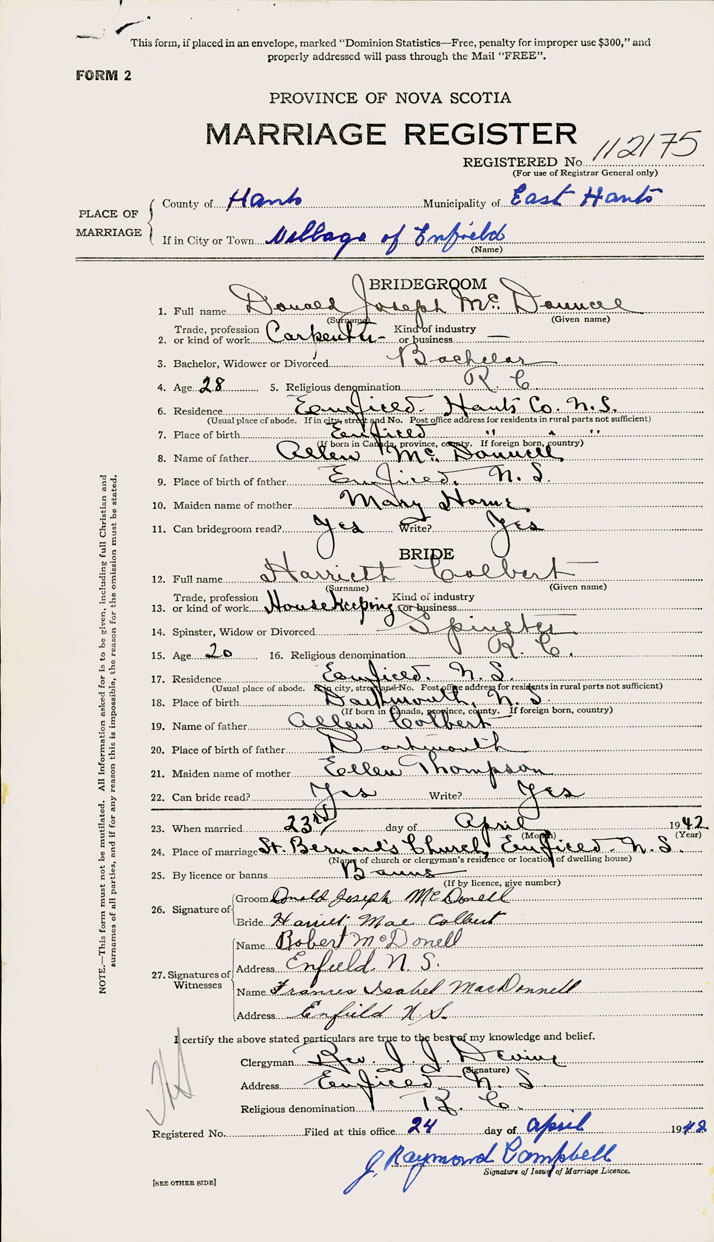 This form, if placed in an envelope, marked "Dominion Statistics—Free, penalty for improper use $300," and
properly addressed will pass through the Mail "FREE".
FORM 2
PROVINCE OF NOVA SCOTIA
MARRIAGE REGISTER
REGISTERED No. 112175
(For use of Registrar General only)
PLACE OF MARRIAGE
County of Hants Municipality of East Hants
If in City or Town Village of Enfield
(Name)
BRIDEGROOM
1. Full name Donald Joseph Mc Donnell
(Surname) (Given name)
2. Trade, profession or kind of work Carpenter Kind of industry or business —
3. Bachelor, Widower or Divorced Bachelor
4. Age 28 5. Religious denomination R. C.
6. Residence Enfield. Hants Co. N. S.
(Usual place of abode. If in city, street and No. Post office address for residents in rural parts not sufficient)
7. Place of birth Enfield " " "
(If born in Canada, province, county. If foreign born, country)
8. Name of father Allen Mc Donnell
9. Place of birth of father Enfield. N. S.
10. Maiden name of mother Mary Horne
11. Can bridegroom read? Yes Write? Yes
BRIDE
12. Full name Harrieth Colbert
(Surname) (Given name)
13. Trade, profession or kind of work Housekeeping Kind of industry or business
14. Spinster, Widow or Divorced Spinster
15. Age 20 16. Religious denomination R. C.
17. Residence Enfield. N. S.
(Usual place of abode. If in city, street and No. Post office address for residents in rural parts not sufficient)
18. Place of birth Dartmouth, N. S.
(If born in Canada, province, county. If foreign born, country)
19. Name of father Allen Colbert
20. Place of birth of father Dartmouth
21. Maiden name of mother Ellen Thompson
22. Can bride read? Yes Write? Yes
23. When married 23rd day of April 1942
(Month) (Year)
24. Place of marriage St. Bernard's Church, Enfield. N. S.
(Name of church or clergyman's residence or location of dwelling house)
25. By licence or banns Banns
(If by licence, give number)
26. Signature of
Groom Donald Joseph McDonell
Bride Harriet Mae Colbert
27. Signatures of Witnesses
Name Robert McDonell
Address Enfield. N. S.
Name Frances Isabel MacDonnell
Address Enfield N. S.
I certify the above stated particulars are true to the best of my knowledge and belief.
Clergyman Rev. J. J. Devine
(Signature)
Address Enfield N. S
Religious denomination R. C.
Registered No. Filed at this office 24 day of April 1942
J. Raymond Campbell
Signature of Issuer of Marriage Licence.
[SEE OTHER SIDE]
NOTE.—This form must not be mutilated. All information asked for is to be given, including full Christian and
surnames of all parties, and if for any reason this is impossible, the reason for the omission must be stated.